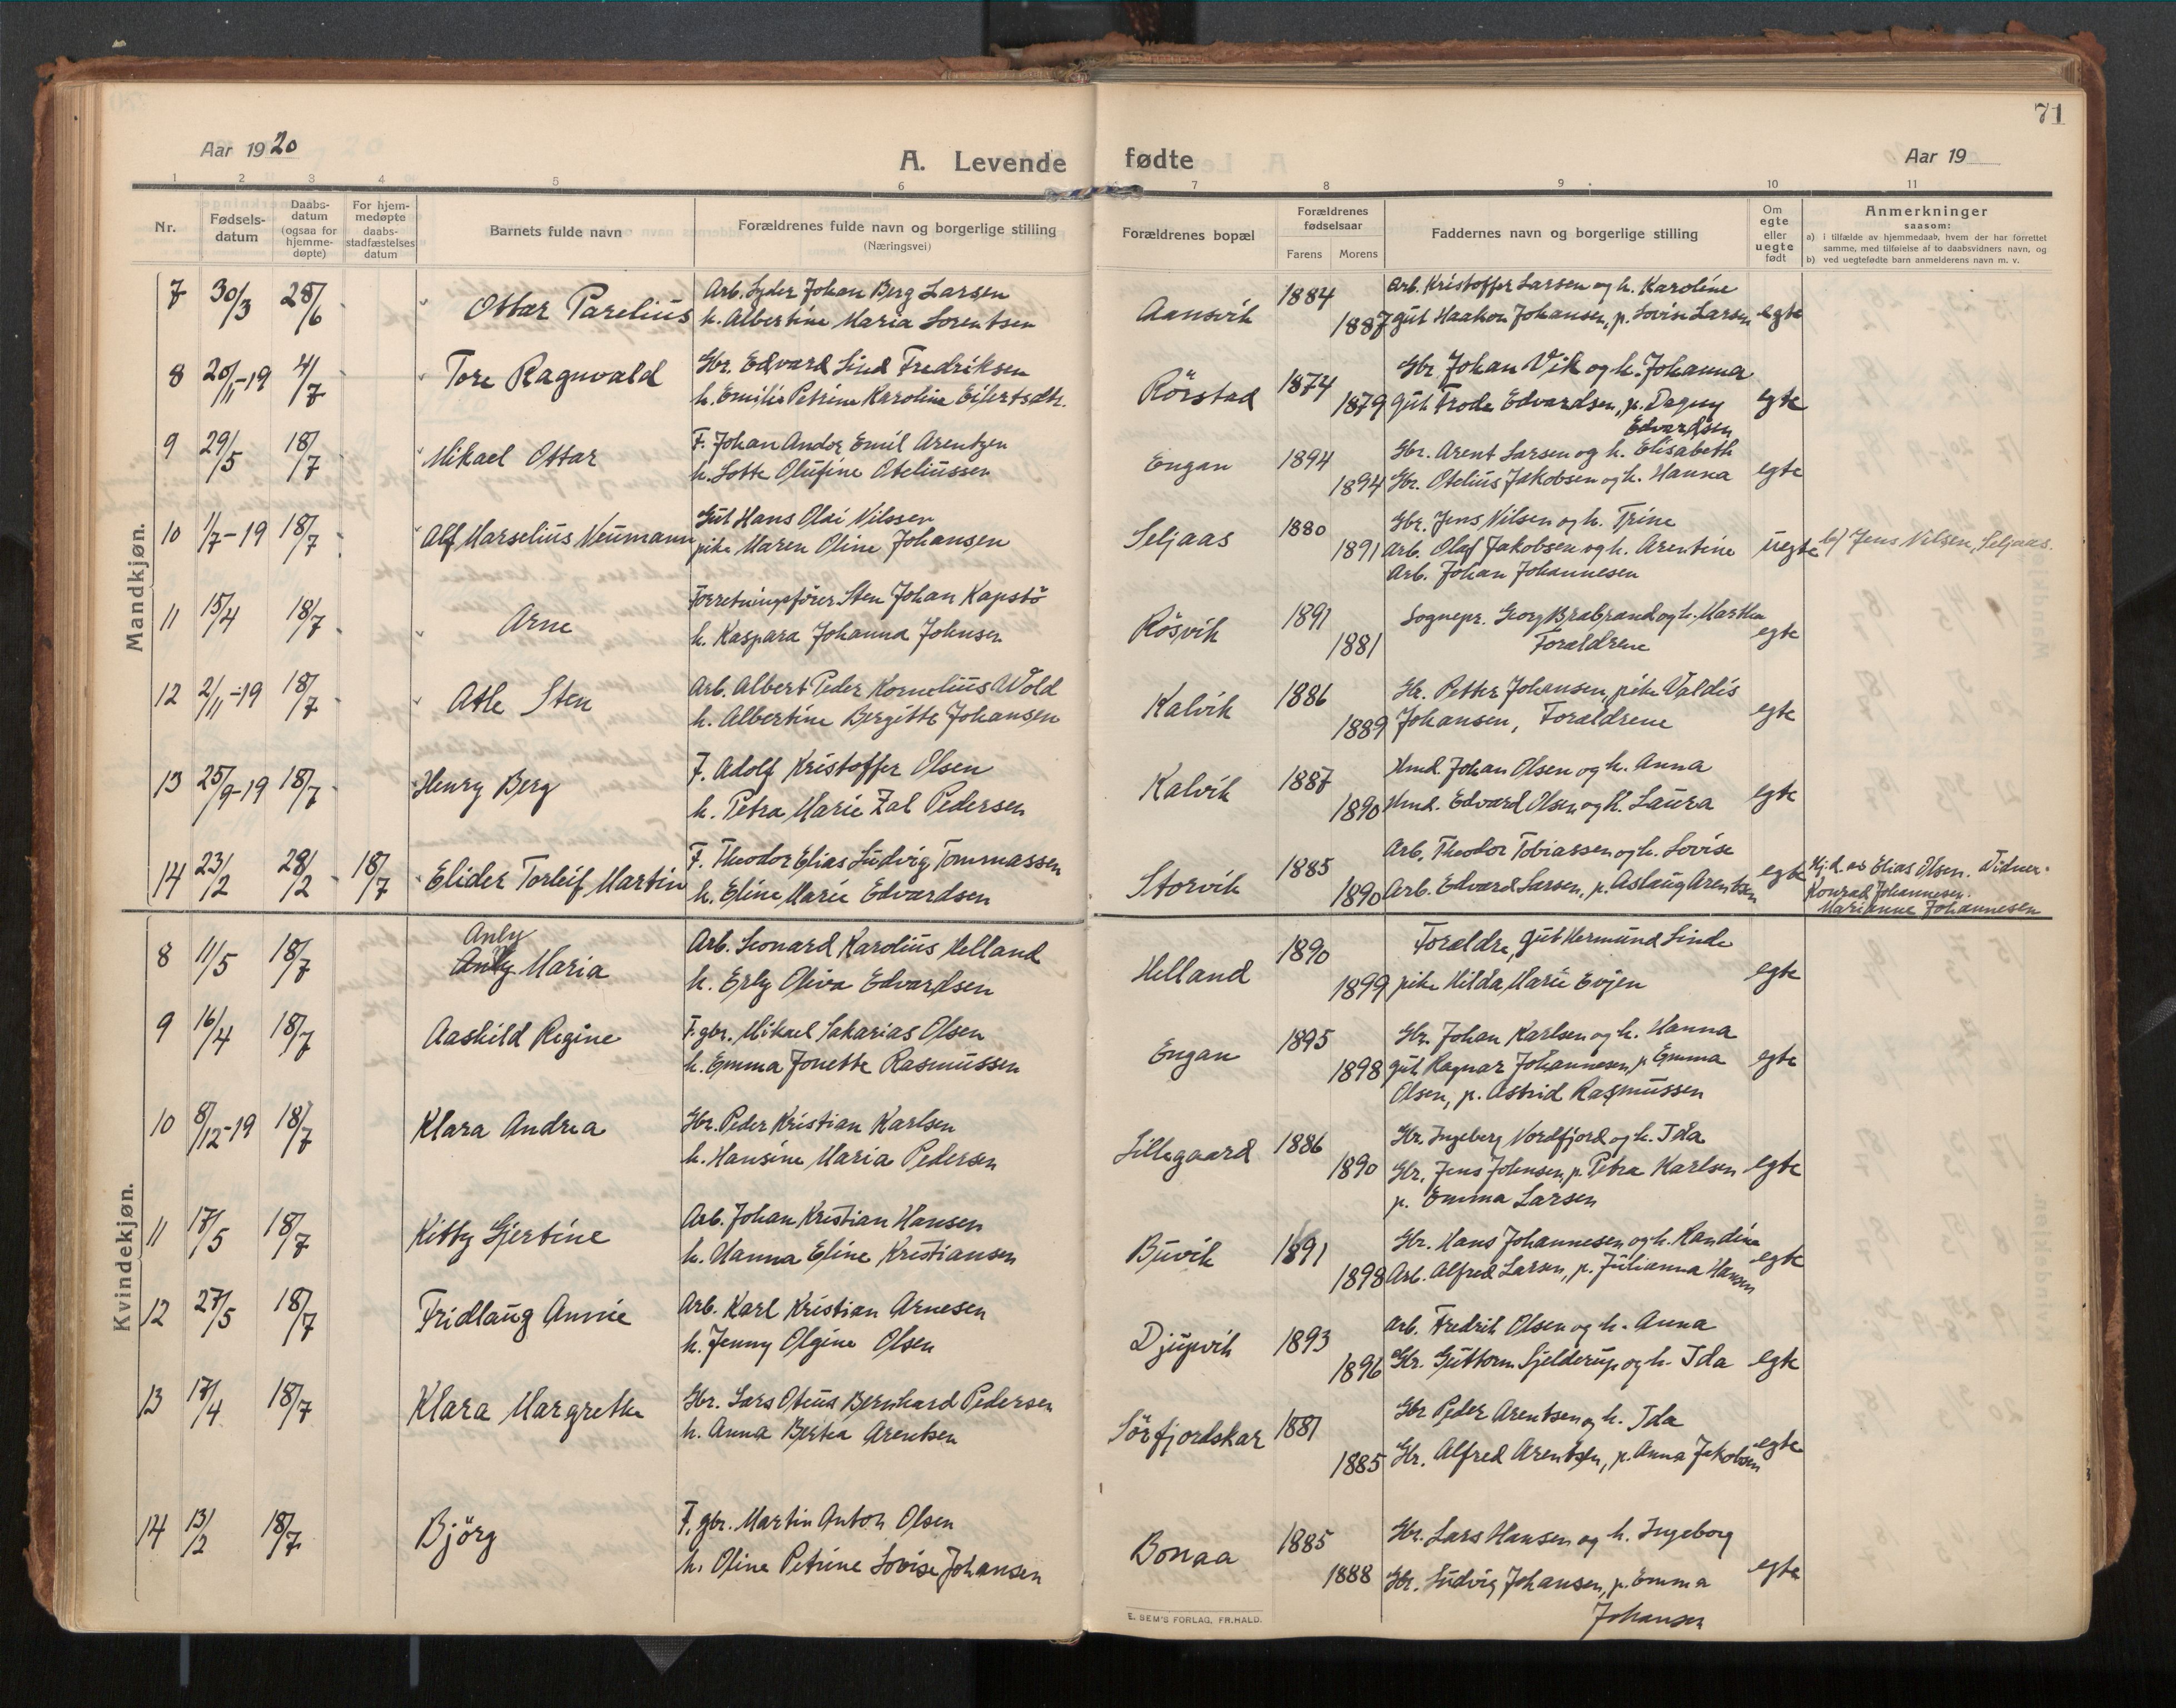 71
Aar 1920
A. Levende fødte
Aar 19
1 2 3 4 5 6 7 8 9 10 11
Nr.
Fødsels-
datum
Daabs-
datum
(ogsaa for
hjemme-
døpte)
For hjem-
medøpte
daabs-
stadfæstelses
datum
Barnets fulde navn
Forældrenes fulde navn og borgerlige stilling
(Næringsvei)
Forældrenes bopæl
Forældrenes
fødselsaar
Farens Morens
Faddernes navn og borgerlige stilling
Om
egte
eller
uegte
født
Anmerkninger
saasom:
a) i tilfælde av hjemmedaab, hvem der har forrettet
samme, med tilføielse af to daabsvidners navn, og
b) ved uegtefødte barn anmelderens navn m. v.
Mandkjøn.
7 30/3 28/6 Ottar Parelius Arb. Syder Johan Berg Larsen Aansvik 1884 Arb. Kristoffer Larsen og h. Karoline
h. Albertine Maria Sorentsen 1887 gut Haakon Johansen, p. Lovise Larsen egte
8 20/11-19 4/7 Tore Ragnvald Gbr. Edvard Lind Fredriksen Rörstad 1874 Gbr Johan Vik og h. Johanna
h. Emilie Petrine Karoline Eilertsdtr. 1879 gut Frode Edvardsen, p. Dagny egte
Edvardsen
9 29/5 18/7 Mikael Ottar F. Johan Andor Emil Arentzen Engan 1894 Gbr. Arent Larsen og h. Elisabeth
h. Lotte Olufine Oteliussen 1894 Gbr. Otelius Jakobsen og h. Hanna egte
10 1/7-19 18/7 Alf Marselius Neumann Gut Hans Olai Nilssen Seljaas 1880 Gbr. Jens Nilsen og h. Trine
pike Maren Oline Johansen 1891 Arb. Olaf Jakobsen og h. Arentine uegte b) Jens Nilsen, Seljaas.
Arb. Johan Johannesen
11 15/4 18/7 Arne Forretningsfører Sten Johan Kapstö Rösvik 1891 Sognepr. Georg Brabrand og h. Martha
h. Kaspara Johanna Johnsen 1881 Forældrene egte
12 2/11-19 18/7 Atle Sten Arb. Albert Peder Kornelius Wold Kalvik 1886 Gbr. Petter Johansen, pike Valdis
h. Albertine Bergitte Johansen 1889 Johansen, Forældrene egte
13 25/9-19 18/7 Henry Berg F. Adolf Kristoffer Olsen Kalvik 1887 Hmd. Johan Olsen og h. Anna
h. Petra Marie Zal Pedersen 1890 Hmd. Edvard Olsen og h. Laura egte
14 23/2 28/2 18/7 Elider Torleif Martin F. Theodor Elias Ludvig Tommassen Storvik 1885 Arb. Theodor Tobiassen og h. Lovise
h. Eline Marie Edvardsen 1890 Arb. Edvard Larsen, p. Aslaug Arentsen egte Hj.d. av Elias Olsen. Vidner.
Konrad Johannesen.
Marianne Johannesen
Kvindekjøn.
Anly
8 11/5 18/7 Anly Maria Arb. Leonard Karolius Helland Helland 1890 Forældre, gut Hermund Linde
h. Erly Oliva Edvardsen 1899 pike Hilda Marie Evjen egte
9 16/4 18/7 Aashild Regine F. gbr. Mikael Sakarias Olsen Engan 1895 Gbr. Johan Karlsen og h. Hanna
h. Emma Jonette Rasmussen 1898 gut Ragnar Johannesen, p. Emma egte
Olsen, p. Astrid Rasmussen
10 8/12-19 18/7 Klara Andrea Gbr. Peder Kristian Karlsen Lillegaard 1886 Gbr. Ingeberg Nordfjord og h. Ida
h. Hansine Maria Pedersen 1890 Gbr. Jens Johnsen, p. Petra Karlsen egte
p. Emma Larsen
11 17/5 18/7 Kitty Gjertine Arb. Johan Kristian Hansen Buvik 1891 Gbr. Hans Johannesen og h. Randine
h. Hanna Eline Kristiansen 1898 Arb. Alfred Larsen, p. Julianna Hansen egte
12 27/5 18/7 Fridlaug Annie Arb. Karl Kristian Arnesen Djupvik 1893 Arb. Fredrik Olsen og h. Anna
h. Jenny Olgine Olsen 1896 Gbr. Guttorm Sjelderup og h. Ida egte
13 17/4 18/7 Klara Margrethe Gbr. Lars Oteus Bernhard Pedersen Sörfjordskar 1881 Gbr Peder Arentsen og h. Ida
h. Anna Bertea Arentsen 1885 Gbr. Alfred Arentsen, p. Anna Jakobsen egte
14 13/2 18/7 Björg F. gbr. Martin Anton Olsen Bonaa 1885 Gbr. Lars Hansen og h. Ingeborg
h. Oline Petrine Lovise Johansen 1888 Gbr. Ludvig Johansen, p. Emma egte
Johansen
E. SEM'S FORLAG, FR.HALD.